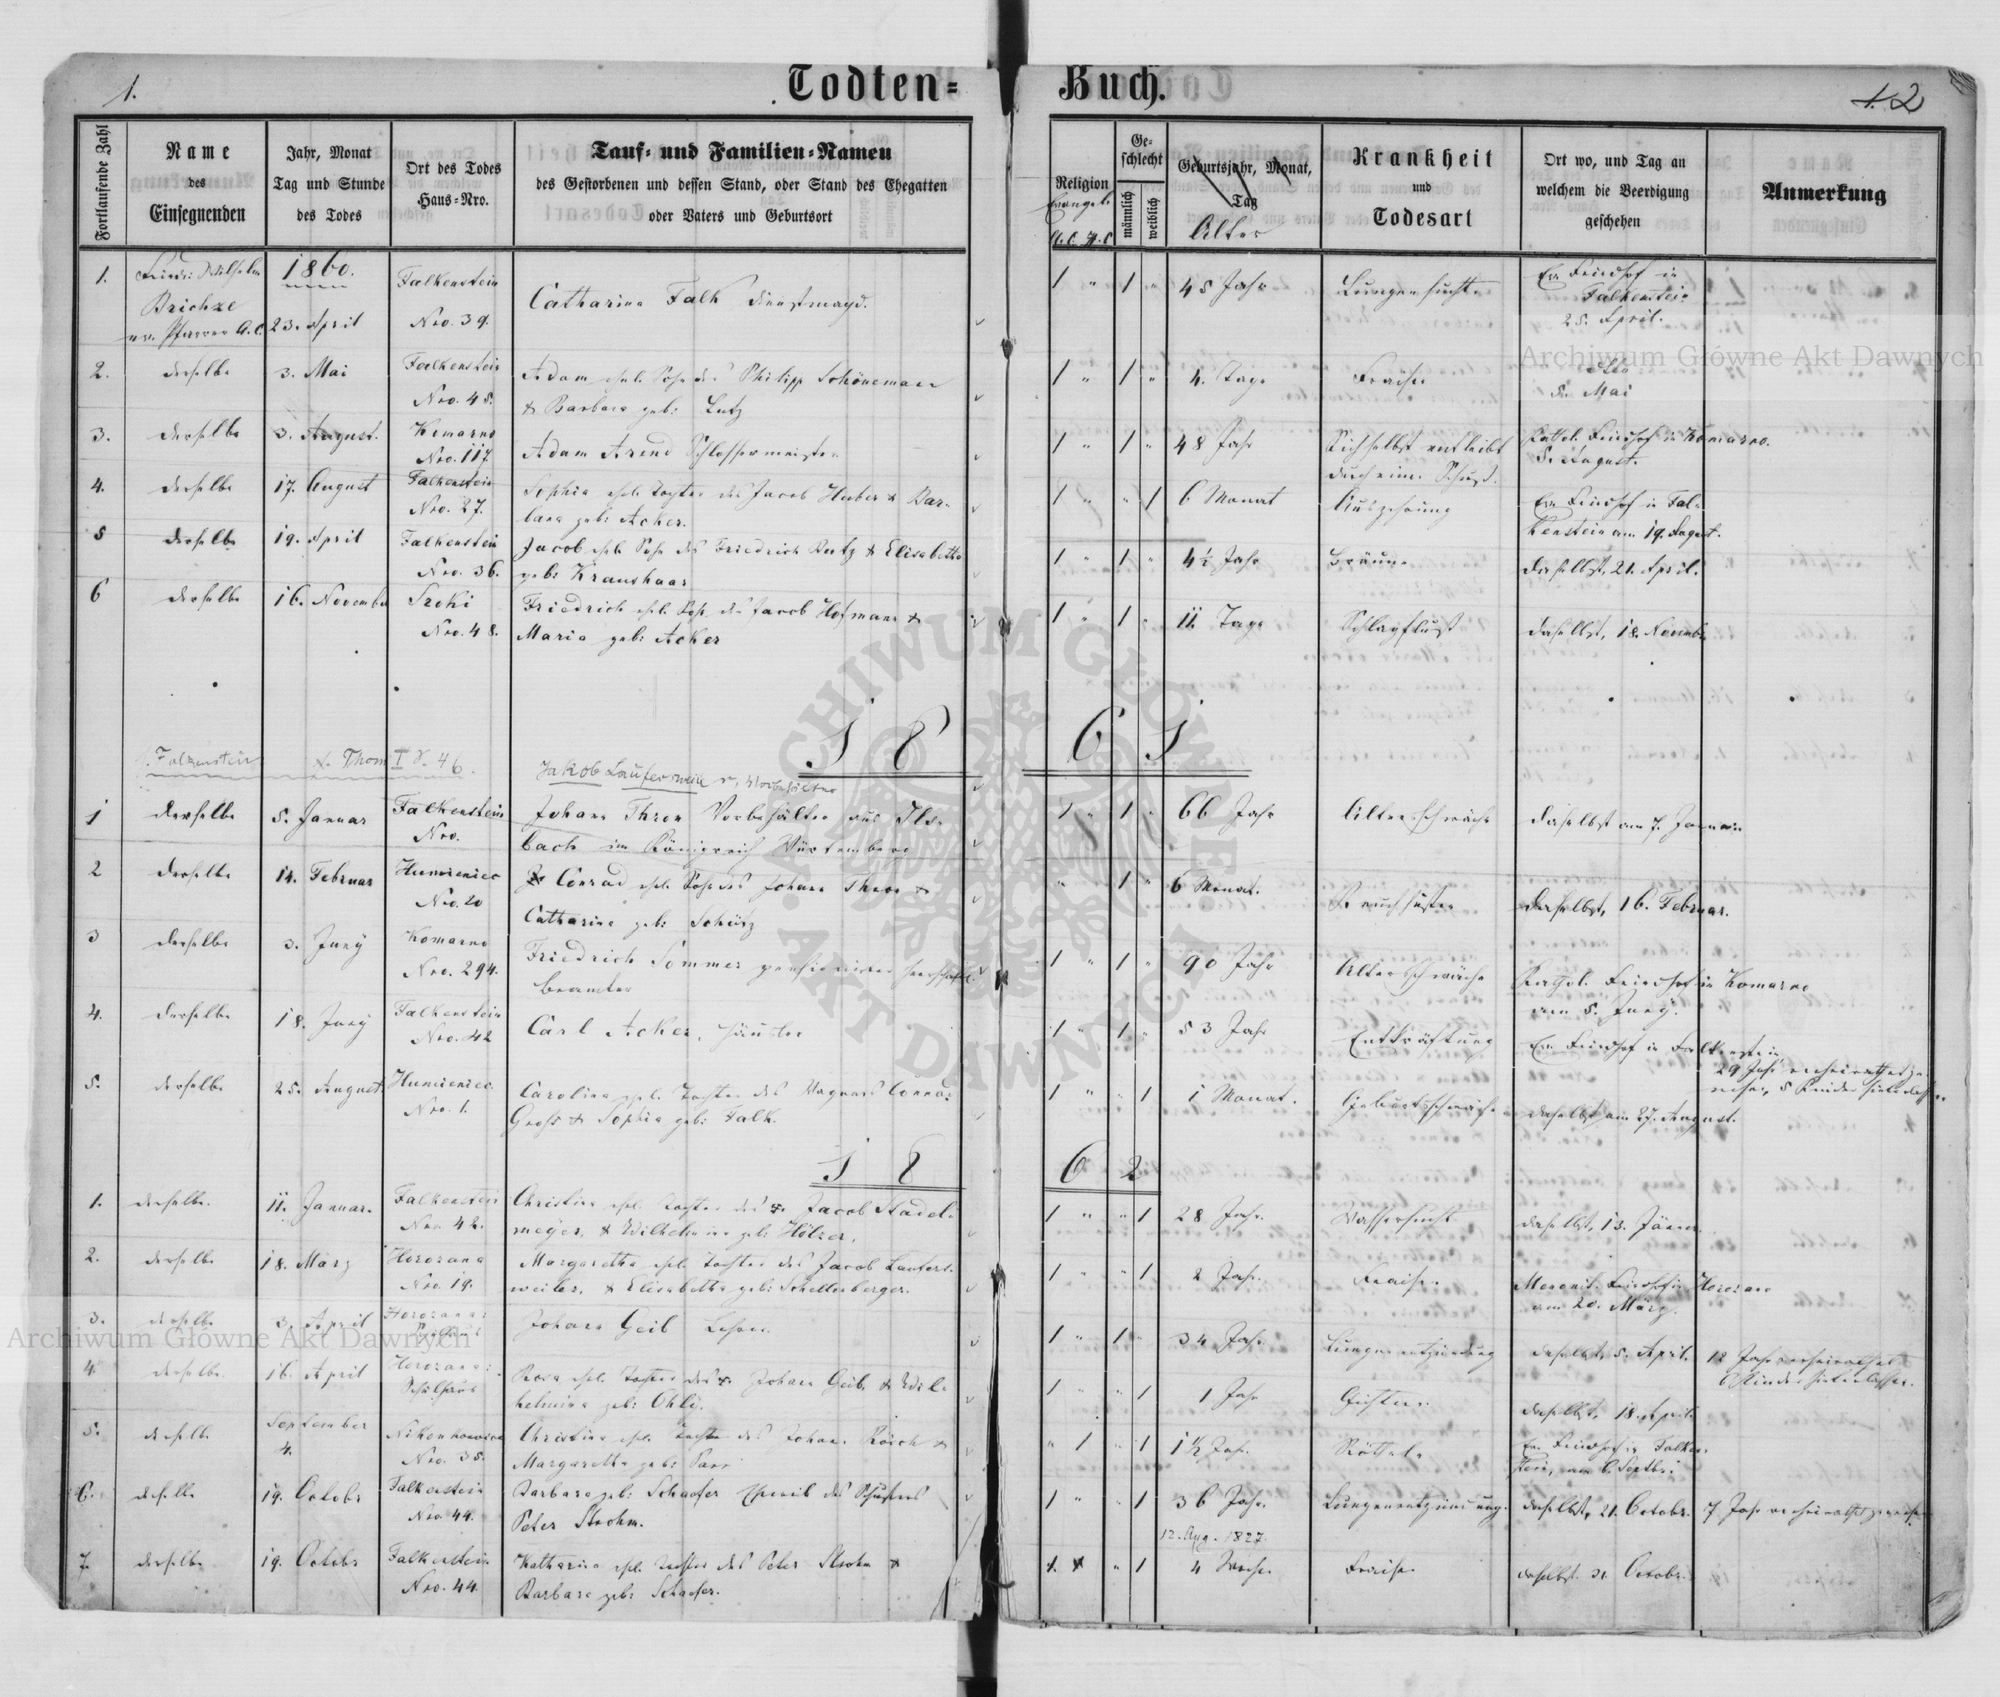 1.
Todten= Buch.
1. 2
Fortlaufende Zahl
Name
des
Einsegnenden
Jahr, Monat
Tag und Stunde
des Todes
Ort des Todes
Haus=Nro.
Tauf= und Familien=Namen
des Gestorbenen und dessen Stand, oder Stand des Ehegatten
oder Vaters und Geburtsort
Religion
Evangel.
A.C. H.C
Ge=
schlecht
männlich
weiblich
Geburtsjahr, Monat,
Tag
Alter
Krankheit
und
Todesart
Ort wo, und Tag an
welchem die Beerdigung
geschehen
Anmerkung
1. 1860. Falkenstein
Brichze
ev. Pfarrer A.C. 23. April Nro. 39.
Catharina Falk Dienstmagd.
1 " 1 " 45 Jahr Lungensucht
Ev. Friedhof in
Falkenstein
25. April.
2. derselbe 3. Mai Falkenstein
Nro. 45.
Adam ehel. Sohn des Philipp Schönemann
& Barbara geb: Lutz
1 " 1 " 4. Tage Fraisen
5. Mai
3. derselbe 3. August. Komarno
Nro. 117.
Adam Arend Schlossermeister
1 " 1 " 48 Jahr Sich selbst entleibt
durch einen Schuß.
Kathol. Friedhof in Komarno.
5. August.
4. derselbe 17. August Falkenstein
Nro. 27.
Sophia ehel. Tochter des Jacob Huber & Bar=
bara geb: Acker.
1 " " 1 6 Monat Auszehrung
Ev. Friedhof in Fal=
kenstein am 19. August.
5 derselbe 19. April Falkenstein
Nro. 36.
Jacob ehel. Sohn des Friedrich Butz & Elisabetha
geb: Kraushaar
1 " 1 " 4½ Jahr Bräune
daselbst, 21. April.
6 derselbe 16. November Szoki
Nro. 48.
Friedrich ehel. Sohn des Jacob Hofmann &
Maria geb: Acker
1 " 1 " 11 Tage Schlagfluß
daselbst, 18. November
1 8 6 1
Falkenstein Thom I S. 46.
Jakob Laufersweiler
1 derselbe 5. Januar Falkenstein
Nro.
Johann Thron Vorbehälter aus Ils=
bach im Königreich Würtemberg
1 " 1 " 66 Jahr Altersschwäche
daselbst am 7. Januar
2 derselbe 14. Februar Humieniec
Nro. 20
Conrad ehel. Sohn des Johann Thron &
Catharina geb: Schütz
" 1 " 6 Monat.
daselbst, 16. Februar.
3 derselbe 3. Juny Komarno
Nro. 294.
Friedrich Sommer pensionirter herrschaftl.
Beamter
1 " 1 " 90 Jahr Altersschwäche
Kathol. Friedhof in Komarno
am 5. Juny.
4. derselbe 18. Juny Falkenstein
Nro. 42
Carl Acker, Häusler
1 " 1 " 53 Jahr Entkräftung
Ev. Friedhof in Falkenstein
29 Jahr verheirathet ge=
wesen, 5 Kinder hinterlassen
5. derselbe 25. August Humieniec
Nro. 1.
Carolina ehel. Tochter des Wagners Conrad
Groß & Sophia geb: Falk.
1 " " 1 1 Monat. Geburtsschwäche
daselbst am 27. August.
1 8 6 2
1. derselbe. 11. Januar. Falkenstein
Nro. 42.
Christina ehel. Tochter des Jacob Stadel=
meyer, & Wilhelmina geb: Hölzer.
1 " " 1 28 Jahr. Wassersucht
daselbst, 13. Jänner
2. derselbe 18. März Horozana
Nro. 19.
Margaretha ehel. Tochter des Jacob Laufers=
weiler, & Elisabetha geb: Schellenberger.
1 " " 1 2 Jahr. Fraisen.
Menonit. Friedhof in Horozana
am 20. März.
3. derselbe 3. April Horozana:
Schulhaus
Johann Geib Lehrer
1 " 1 " 34 Jahr. Lungenentzündung
daselbst, 5. April.
12 Jahr verheirathet
6 Kinder hinterlassen.
4 derselbe. 16. April Horozana:
Schulhaus
Rosa ehel. Tochter des Johann Geib & Wil=
helmina geb: Ohli.
1 " " 1 1 Jahr
daselbst, 18. April
5. derselbe September
4. Nikonkowice
Nro. 35.
Christina ehel. Tochter des Johann Rösch &
Margaretha geb:
" 1 " 1 1½ Jahr. Rötheln
Ev. Friedhof in Falken=
stein, am 6. Septbr.
6. derselbe 19. Octobr Falkenstein
Nro. 44.
Barbara geb: Schaefer Eheweib des Schusters
Peter Strohm.
1 " " 1 36 Jahr. Lungenentzündung.
12. Aug. 1827.
daselbst, 21. Octobr. 7 Jahr verheirathet gewesen
7. derselbe 19. Octobr Falkenstein
Nro. 44.
Katharina ehel. Tochter des Peter Strohm &
Barbara geb: Schaefer.
1. " " 1 4 Woche. Fraisen
daselbst. 21. Octobr.
Archiwum Główne Akt Dawnych
Archiwum Główne Akt Dawnych
ARCHIWUM GŁÓWNE AKT DAWNYCH